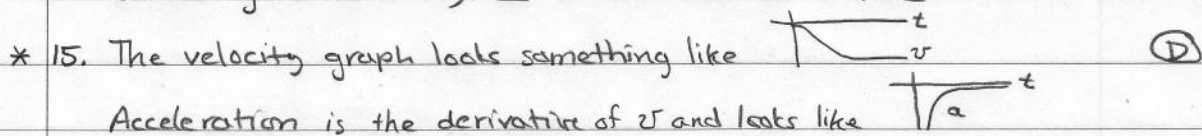 * 15. The velocity graph looks something like t v D
Acceleration is the derivative of v and looks like t a